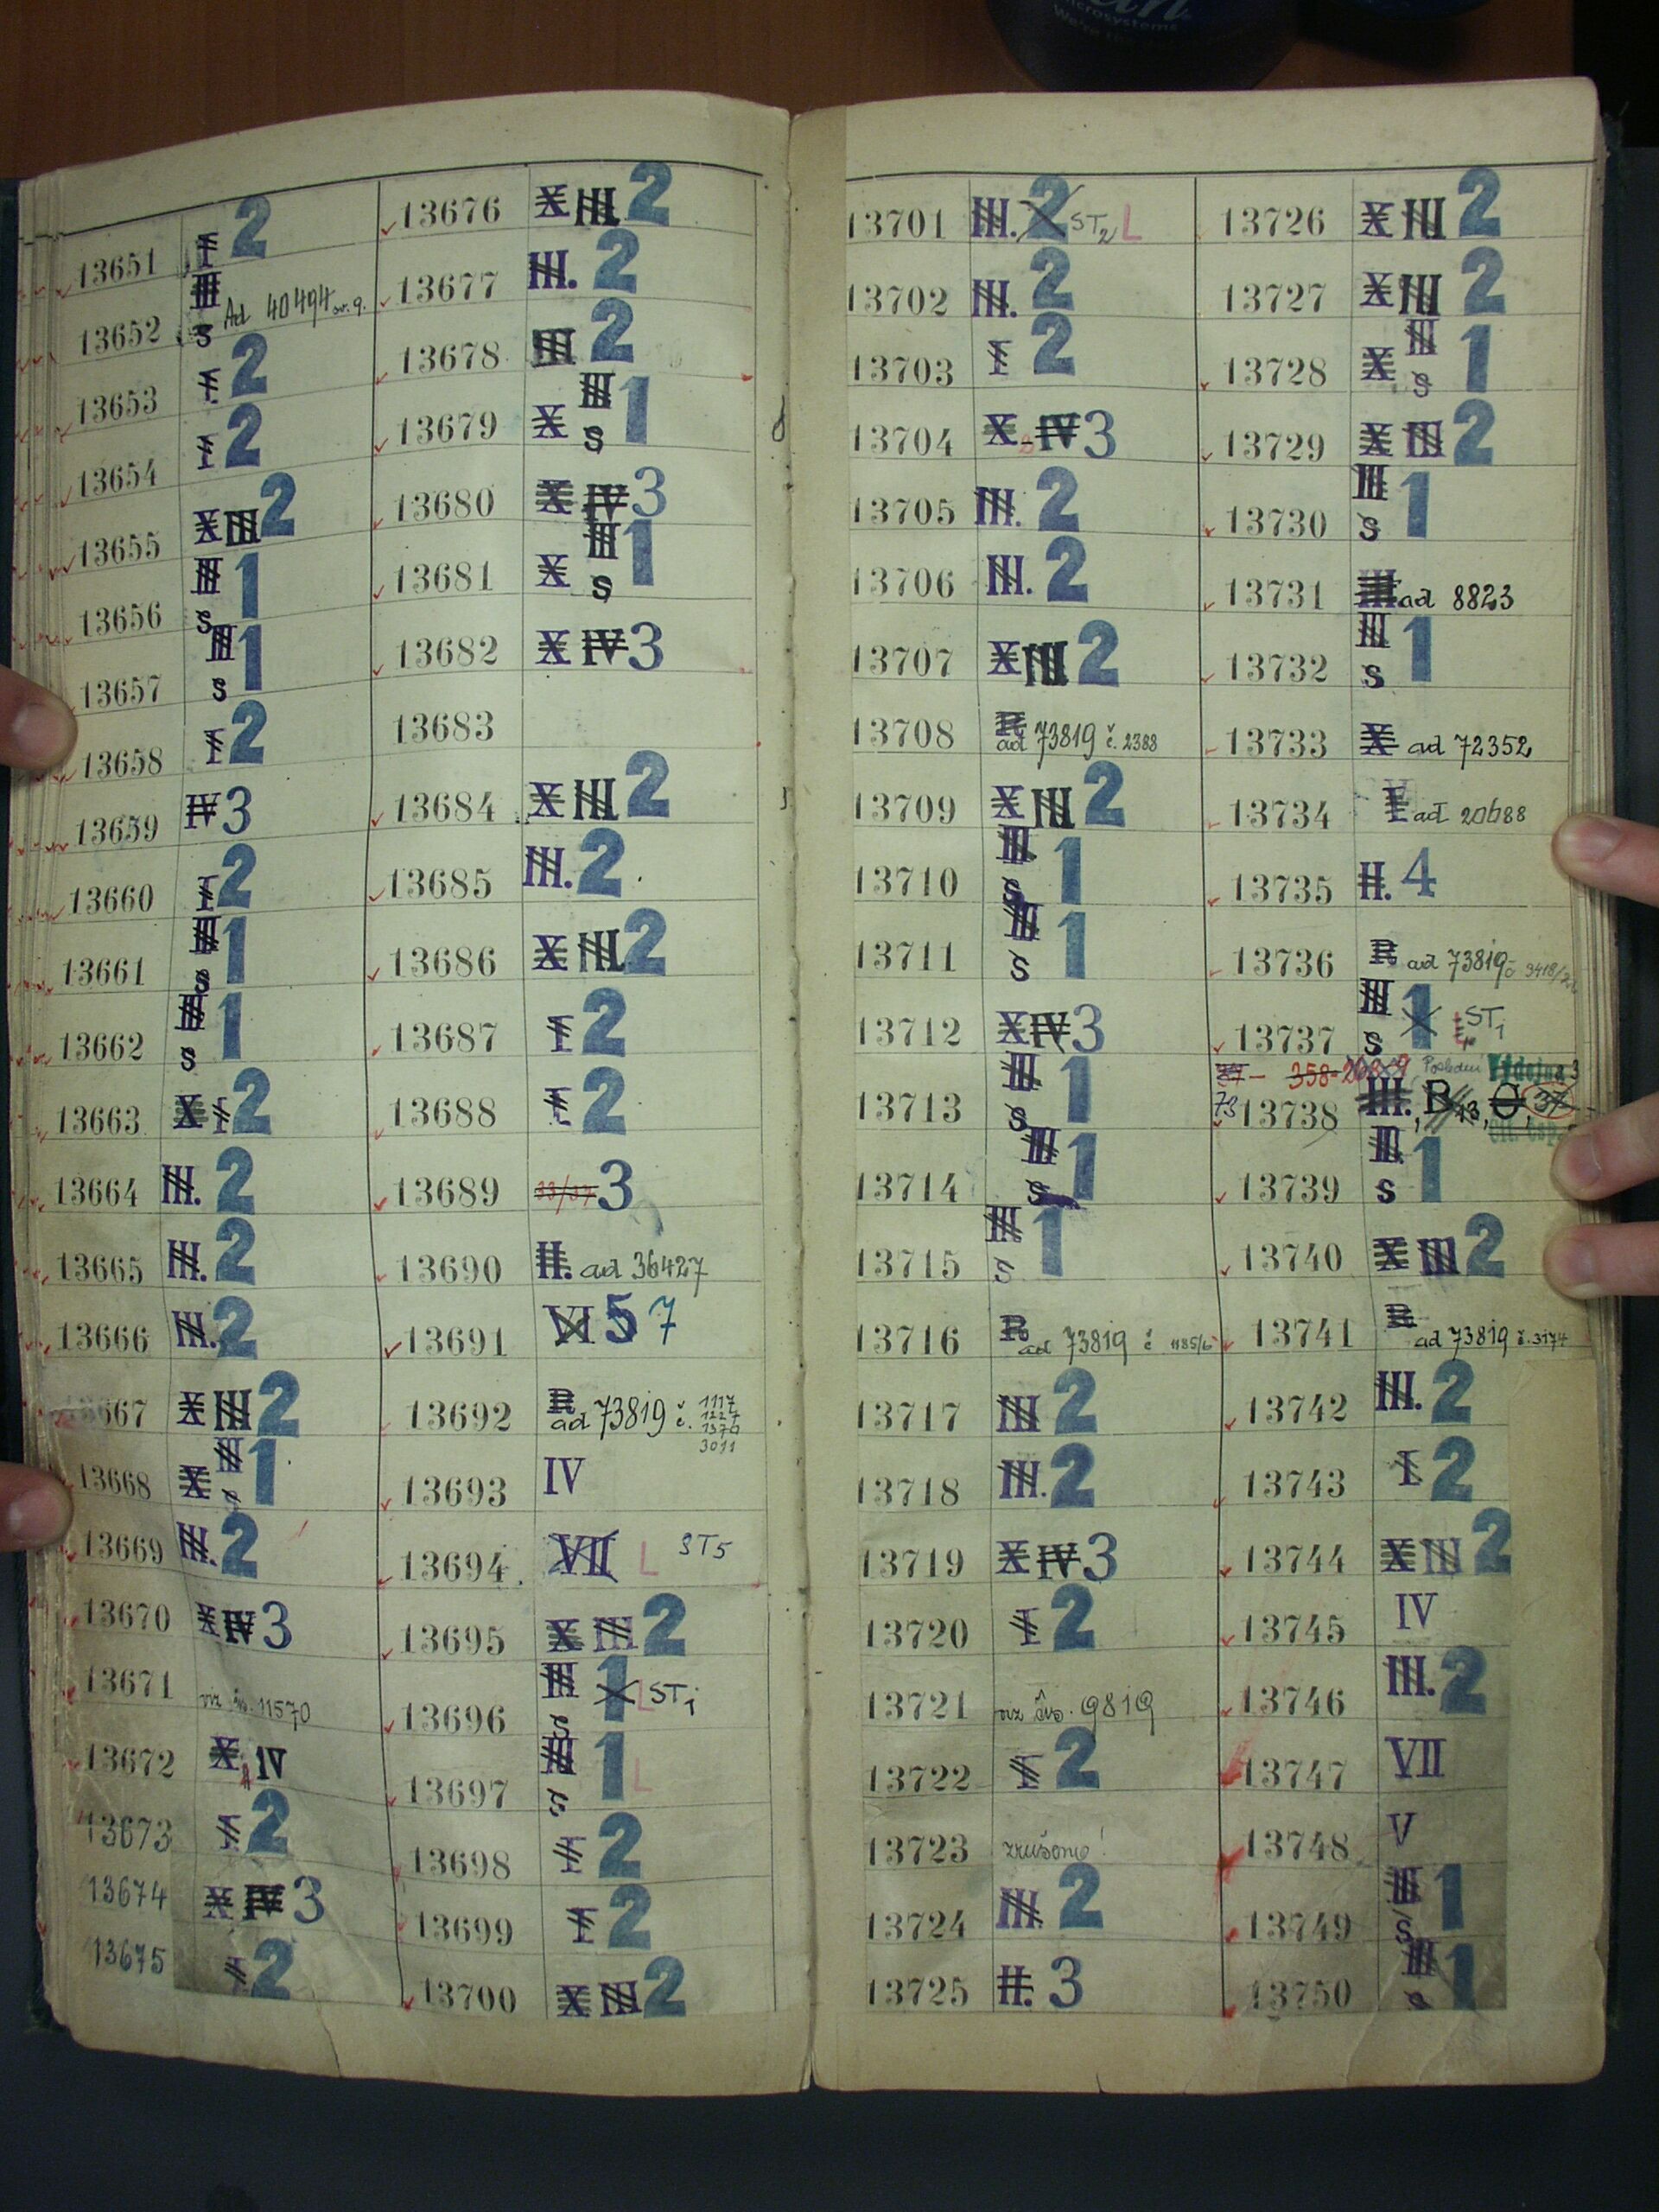 Microsystems
13651 I 2
13652 III s Ad 40494
13653 I 2
13654 I 2
13655 X III 2
13656 III s 1
13657 III s 1
13658 I 2
13659 IV 3
13660 I 2
13661 III s 1
13662 III s 1
13663 X I 2
13664 III. 2
13665 III. 2
13666 III. 2
667 X III 2
13668 X III s 1
13669 III. 2
13670 X IV 3
13671 viz čís. 11570
13672 X IV
13673 I 2
13674 X IV 3
13675 I 2
13676 X III 2
13677 III. 2
13678 III 2
13679 X III s 1
13680 X IV 3
13681 X III s 1
13682 X IV 3
13683
13684 X III 2
13685 III. 2
13686 X III 2
13687 I 2
13688 I 2
13689 33/37 3
13690 II. ad 36427
13691 VI 5 7
13692 R ad 73819 č. 1117 1227 1376 3011
13693 IV
13694 VII L ST5
13695 X III 2
13696 III s 1 L ST1
13697 III s 1 L
13698 I 2
13699 I 2
13700 X III 2
13701 III. 2 ST2 L
13702 III. 2
13703 I 2
13704 X IV 3
13705 III. 2
13706 III. 2
13707 X III 2
13708 R ad 73819 č. 2388
13709 X III 2
13710 III s 1
13711 III s 1
13712 X IV 3
13713 III s 1
13714 III s 1
13715 III s 1
13716 R ad 73819 č 1185/6
13717 III 2
13718 III. 2
13719 X IV 3
13720 I 2
13721 viz čís. 9819
13722 I 2
13723 zrušeno!
13724 III. 2
13725 II. 3
13726 X III 2
13727 X III 2
13728 X III s 1
13729 X III 2
13730 III s 1
13731 III ad 8823
13732 III s 1
13733 X ad 72352
13734 V ad 20688
13735 II. 4
13736 R ad 73819 č 3418/22
13737 III s 1 ST1
358-20889 Poslední Výdejna 3
73 13738 III. B
13739 III s 1
13740 X III 2
13741 R ad 73819 č. 3174
13742 III. 2
13743 I 2
13744 X III 2
13745 IV
13746 III. 2
13747 VII
13748 V
13749 III s 1
13750 III s 1